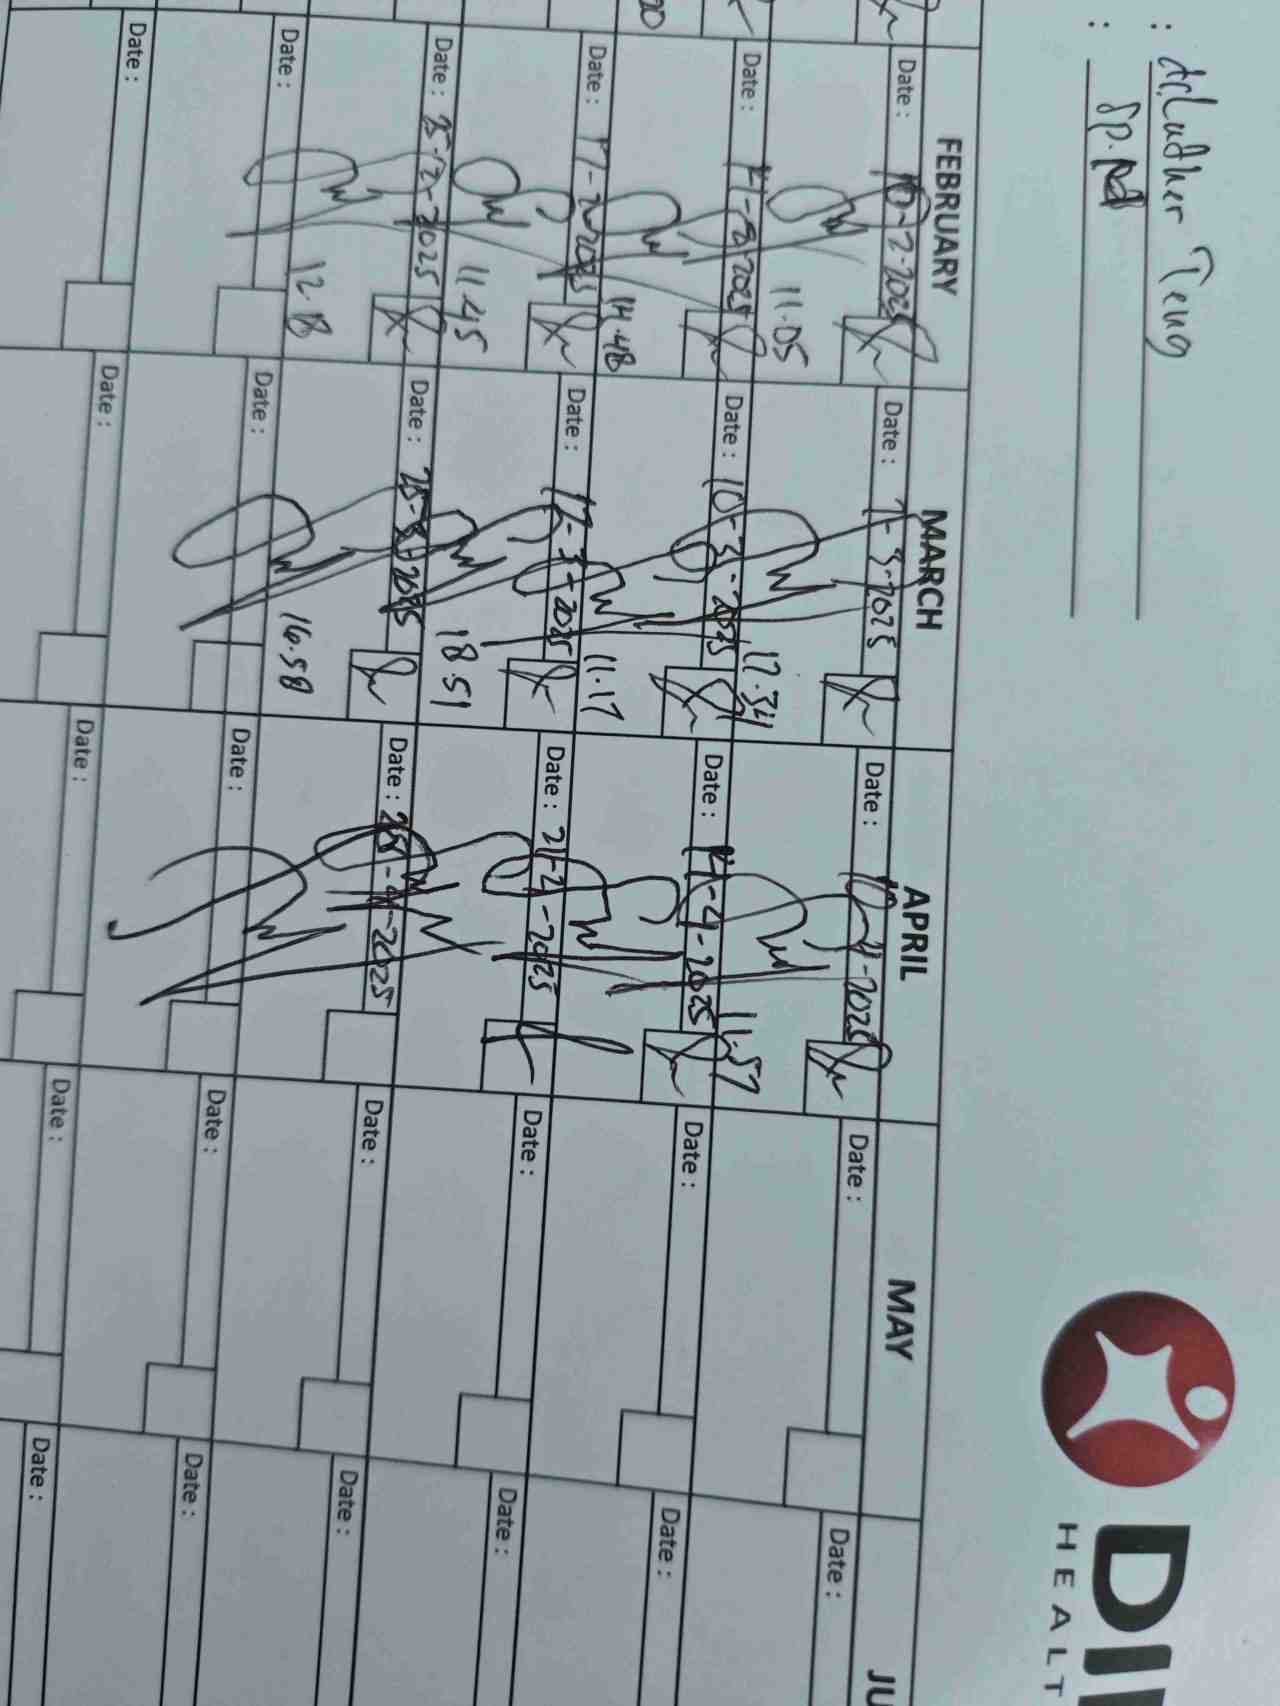 : dr. Luther Teng
: Sp.Pd
DI
HEALT
FEBRUARY MARCH APRIL MAY JU
Date : 10-2-2025 Date : 7-3-2025 Date : 10-4-2025 Date : Date :
11.05
Date : 11-2-2025 Date : 10-3-2025 Date : 14-4-2025 Date : Date :
14.48 17.34 11.57
Date : 17-2-2025 Date : 17-3-2025 Date : 21-4-2025 Date : Date :
11.45 11.17
Date : 25-2-2025 Date : 25-3-2025 Date : 25-4-2025 Date : Date :
12.18 18.51
Date : Date : Date : Date : Date :
16.58
Date : Date : Date : Date : Date :